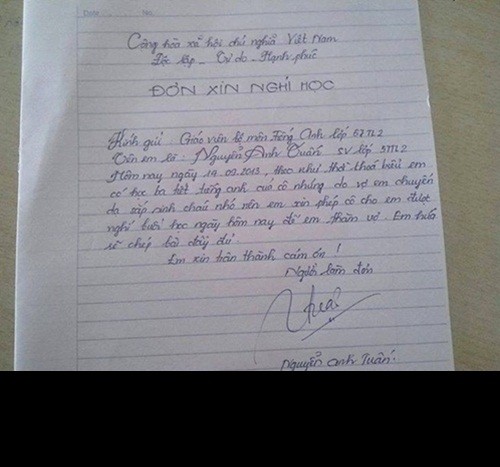 Date No.
Cộng hòa xã hội chủ nghĩa Việt Nam
Độc lập - Tự do - Hạnh phúc
ĐƠN XIN NGHỈ HỌC
Kính gửi : Giáo viên bộ môn Tiếng Anh lớp 57TL2
Tên em là : Nguyễn Anh Tuấn SV lớp 57TL2
Hôm nay ngày 19.09.2013, theo như thời khoá biểu em
có học ba tiết tiếng anh của cô nhưng do vợ em chuyển
dạ sắp sinh cháu nhỏ nên em xin phép cô cho em được
nghỉ buổi học ngày hôm nay để em thăm vợ. Em hứa
sẽ chép bài đầy đủ.
Em xin trân thành cám ơn !
Người làm đơn
Nguyễn Anh Tuấn.